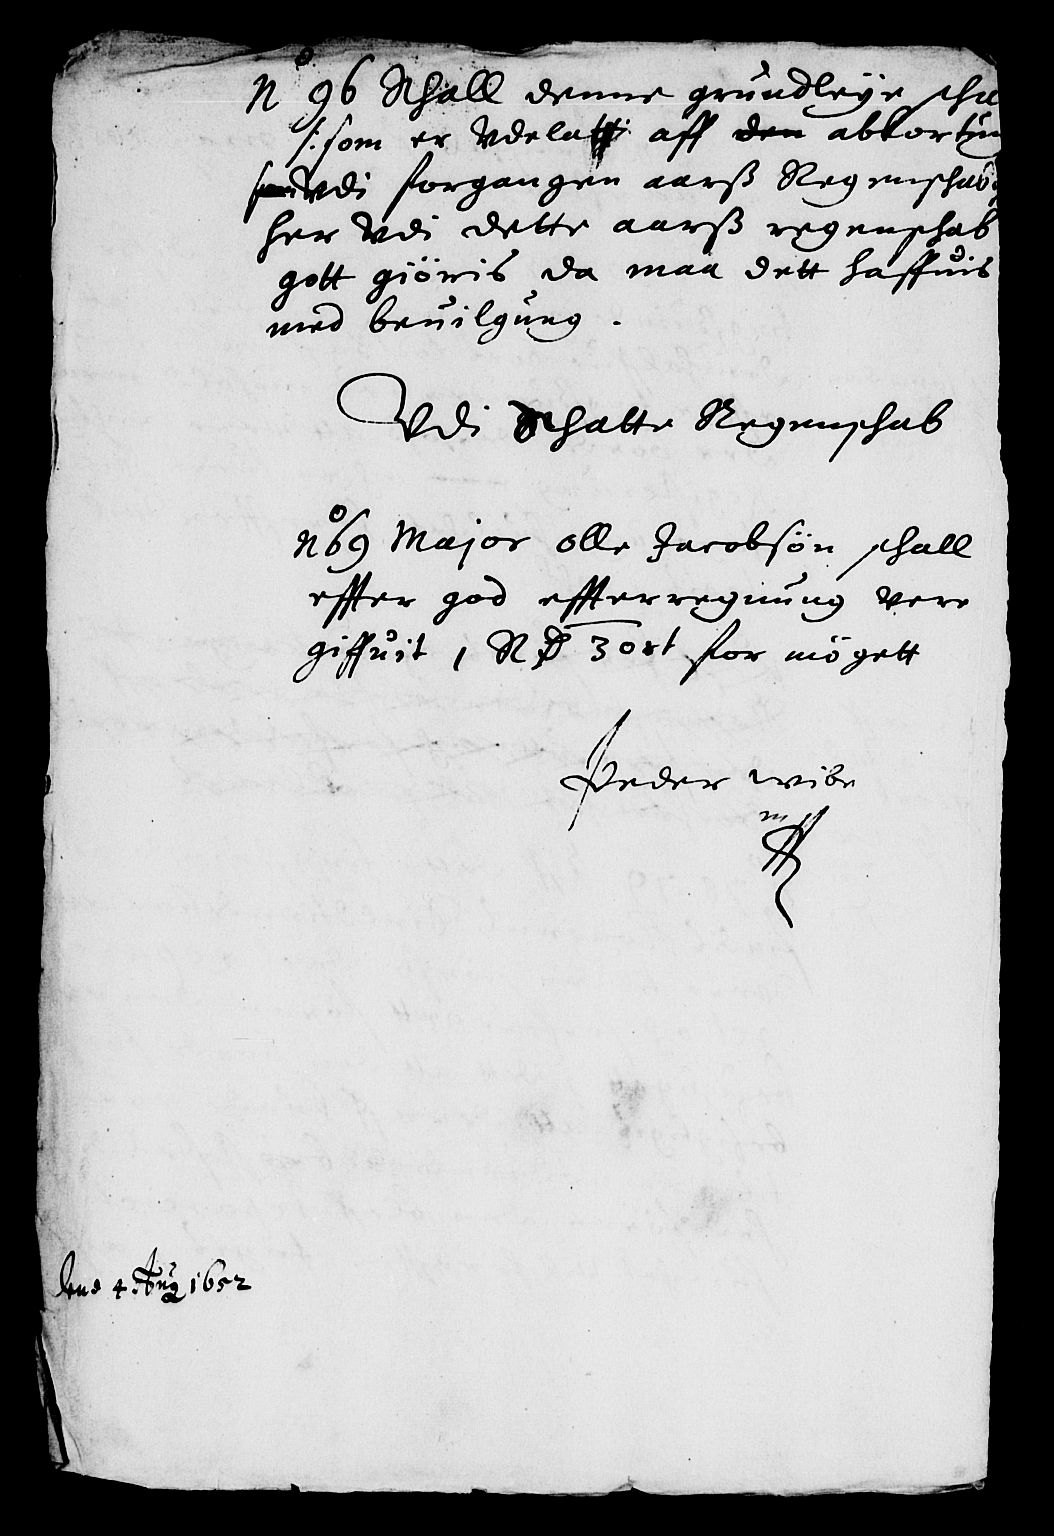 No 96 Schall denne grundleÿe scha
/: som er Vdelatt :/ aff den abkortun
Vdi forgangen aarß Regenschab
her Vdi dette aarß regenschab
gott giöris da maa dett haffuis
med beuilgung .
Vdi Schatte Regenschab
No 69 Major Olle Jacobsön schall
effter god effterregnung vere
giffuit 1 Rd 3 ort for mögett
Peder wibe
mp
dend 4 Aug 1652